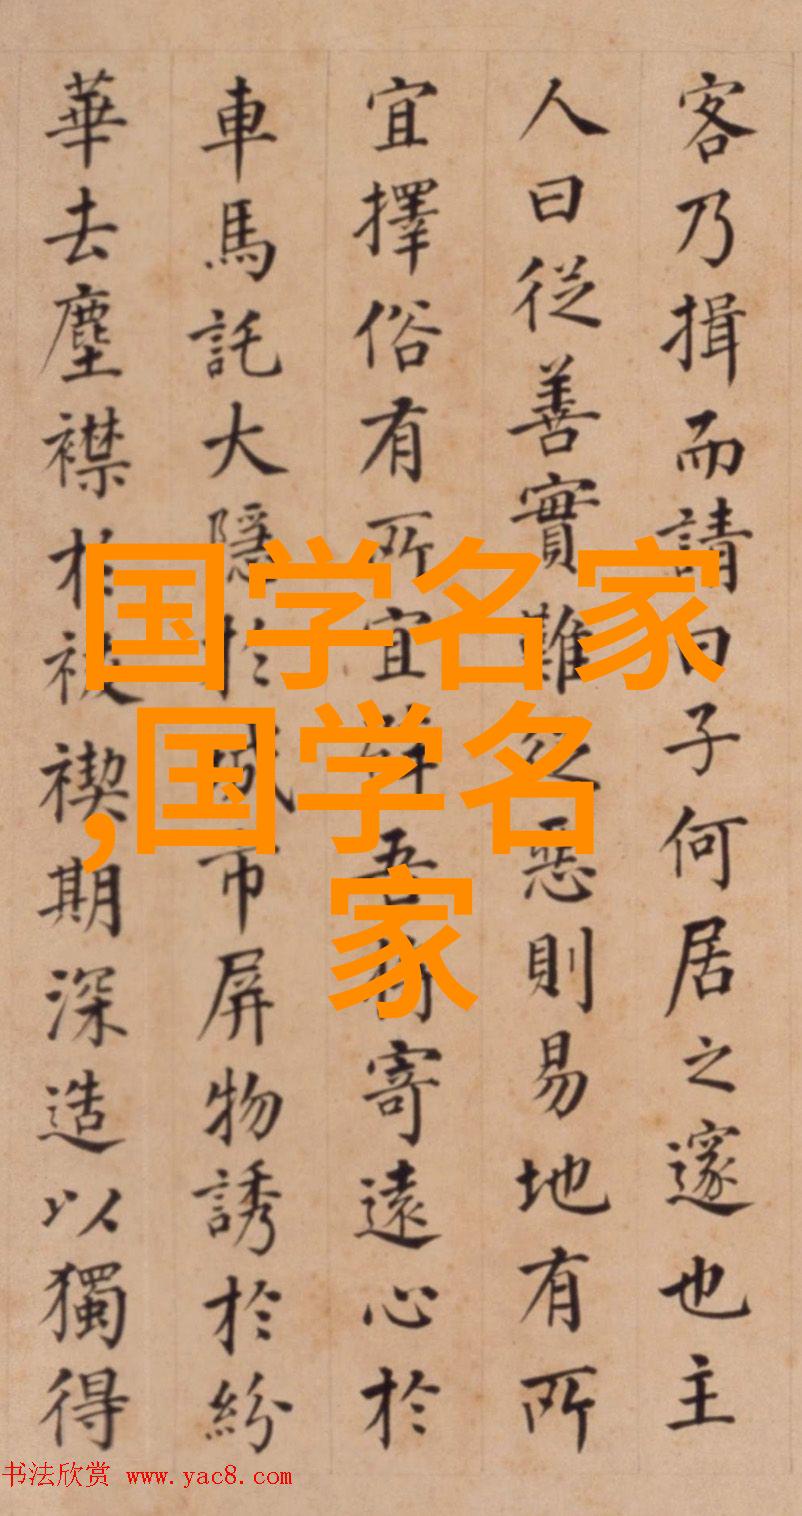 客乃揖而請曰子何居之邃也主
人曰從善實難從惡則易地有所
宜擇俗有所宜宜 吾 寄遠心於
車馬託大隱於城市屏物誘於紛
華去塵襟於祓禊期深造以獨得
国学名家
,国学名
家
书法欣赏 www.yac8.com